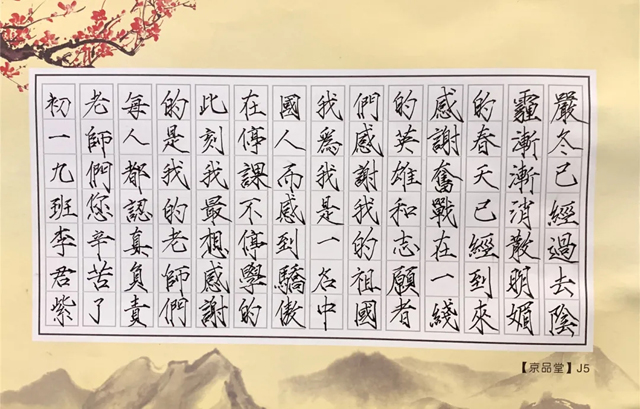 嚴冬已經過去陰
霾漸漸消散明媚
的春天已經到來
感謝奮戰在一綫
的英雄和志願者
們感謝我的祖國
我爲我是一名中
國人而感到驕傲
在停課不停學的
此刻我最想感謝
的是我的老師們
每人都認真負責
老師們您辛苦了
初一九班李君紫
【京品堂】J5